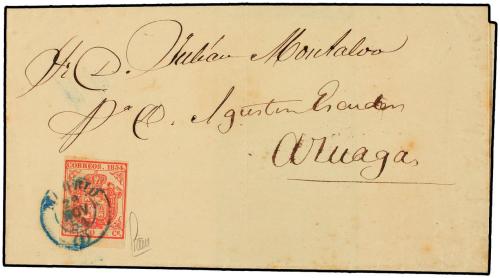 Sr. D. Julián Montalvo
Pª D. Agustin Escudero
Azuaga
CORREOS. 1854
NOV